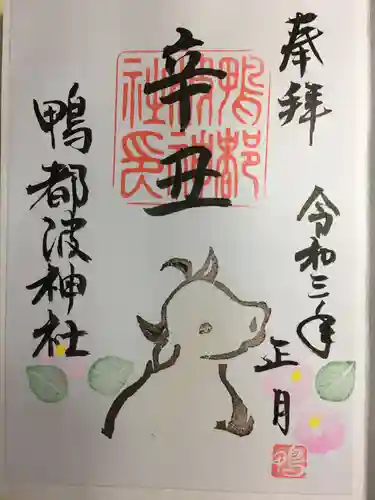 奉拝
令和三年
正月
辛丑
鴨都波神社
鴨都
波神
社印
鴨